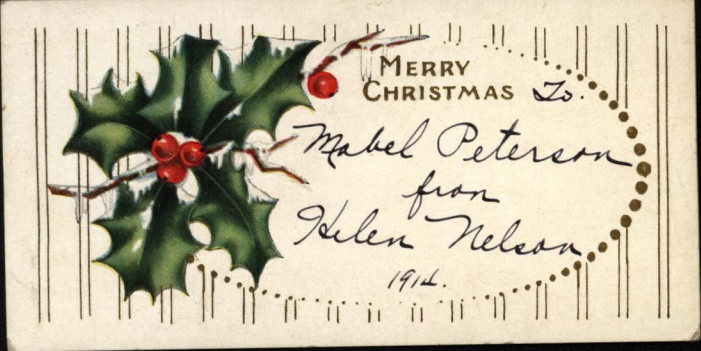 MERRY
CHRISTMAS To.
Mabel Peterson
from
Helen Nelson
1914.